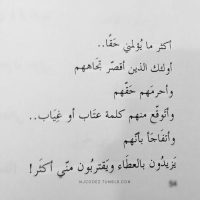 أكثر ما يُؤلمني حَقًا..
أولئك الذين أقصّر تجَاههم
وأحرمَهم حَقّهم
وأتَوقّع منهم كلمة عتَاب أو غِيَاب..
وأتفَاجَأ بأنّهم
يَزيدُون بالعطَاء ويَقتربُون منّي أكثَر!
MJCODEZ.TUMBLR.COM
94